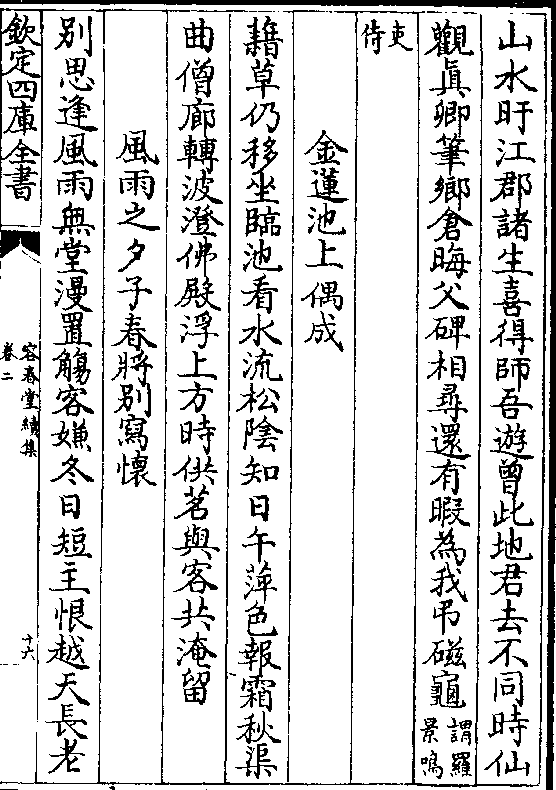 山水盱江郡諸生喜得師吾遊曾此地君去不同時仙
觀真卿筆鄉倉晦父碑相尋還有暇為我弔磁龜謂羅景鳴
吏侍
金蓮池上偶成
藉草仍移坐臨池看水流松陰知日午萍色報霜秋渠
曲僧廊轉波澄佛殿浮上方時供茗與客共淹留
風雨之夕子春將别寫懷
别思逢風雨無堂漫置觴客嫌冬日短主恨越天長老
欽定四庫全書
容春堂續集
卷二
十六